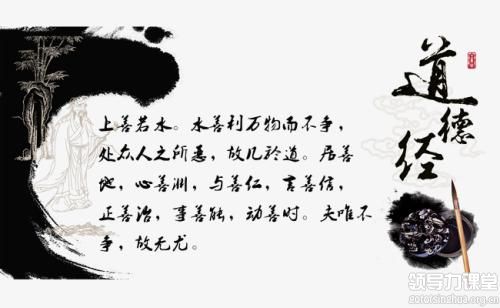 道德经
上善若水。水善利万物而不争，
处众人之所恶，故几於道。居善
地，心善渊，与善仁，言善信，
正善治，事善能，动善时。夫唯不
争，故无尤。
领导力课堂
aotoisindhua.org.cn